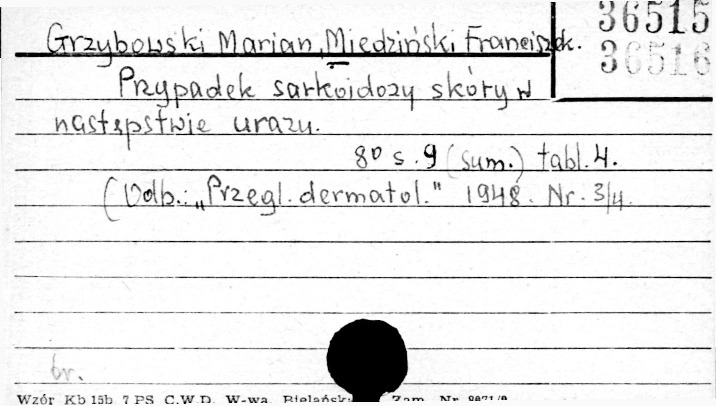 36515
Grzybowski Marian, Miedziński Franciszek.
36516
Przypadek sarkoidozy skóry w
następstwie urazu.
8° s. 9 (sum.) tabl. 4.
(Odb.: „Przegl. dermatol." 1948. Nr. 3/4.
br.
Wzór Kb 15b 7 PS C.W.D. W-wa, Zam. Nr